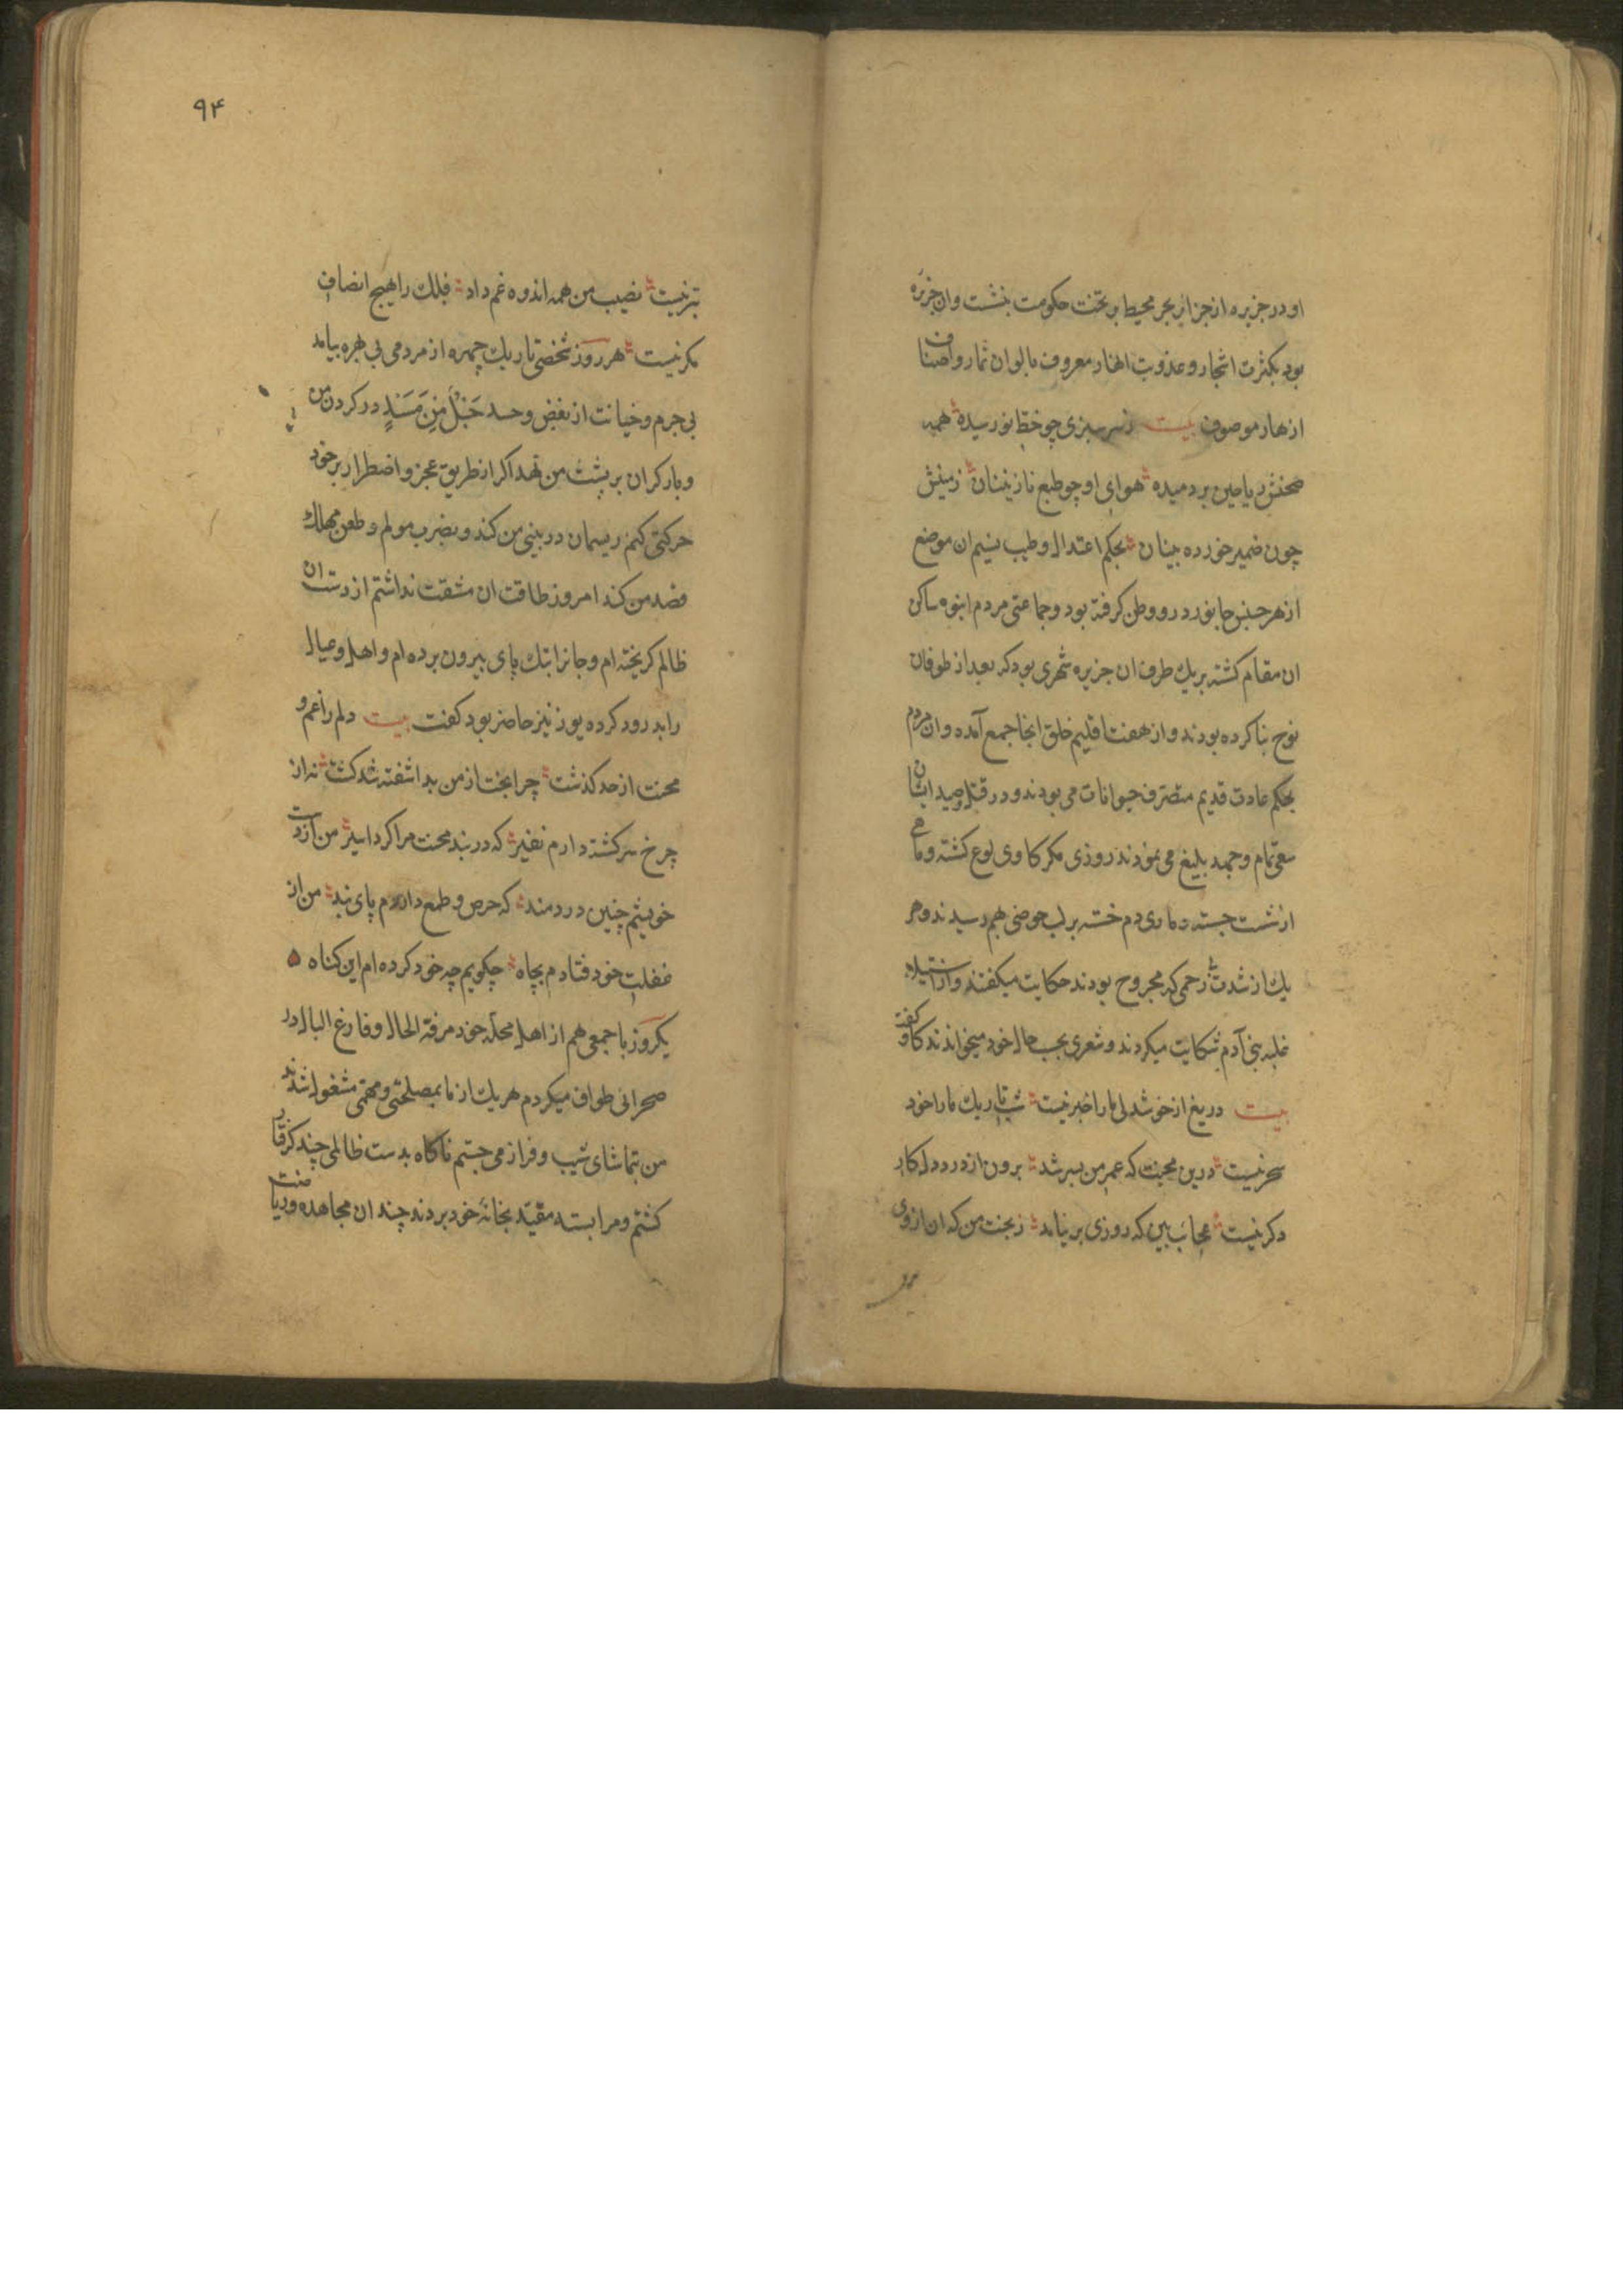 او در جزیره از جزایر بحر محیط بر تخت حکومت بنشست وان جزیره
بود بکثرت اشجار و عذوبت انهار معروف بالوان ثمار و اصناف
ازهار موصوف بیت ز سرسبزی چو خط نو رسیده همه
صحنش ریاحین بردمیده هوای او چو طبع نازنینان زمینش
چون ضمیر خورده بینان بحکم اعتدال و طیب نسیم ان موضع
از هر جنس جانور درو وطن کرفته بود و جماعتی مردم انبوه ساکن
ان مقام کشته بر یك طرف ان جزیره شهری بود که بعد از طوفان
نوح بنا کرده بودند و از هفت اقلیم خلق انجا جمع آمده وان مردم
بحکم عادت قدیم متصرف حیوانات می بودند و در قتل و صید ایشان
سعی تمام و جهد بلیغ می نمودند روزی مکر کاوی یوغ کشته و ماهی
از شست جسته و ماری دم خسته بر لب حوضی بهم رسیدند و هر
یك از شدت زخمی که مجروح بودند حکایت میکفتند و از استیلاء
غلبه بنی آدم شکایت میکردند و شعری بحسب حال خود میخواندند کاو کفت
بیت دریغ از خوشدلی ما را خبر نیست شب تاریك ما را خود
سحر نیست درین محنت که عمر من بسر شد برون از درد دل کار
دکر نیست عجائب بین که روزی بر نیامد ز بخت من که ان از وی
۹۴
بتر نیست نصیب من همه اندوه غم داد فلك را هیچ انصاف
مکر نیست هر روز شخصی تاریك چهره از مردمی بی بهره بیامد
بی جرم و خیانت از بغض و حسد حَبْلٌ مِنْ مَسَدٍ در کردن من
و بار کران بر پشت من نهد اکر از طریق عجز و اضطرار بر خود
حرکتی کنم ریسمان در بینی من کند و بضرب مولم و طعن مهلك
قصد من کند امروز طاقت ان مشقت نداشتم از دست ان
ظالم کریخته ام و جانرا بتك پای بیرون برده ام و اهل و عیال
را بدرود کرده یوز نیز حاضر بود کفت بیت دلم را غم و
محنت از حد کذشت چرا بخت از من بد اشفته شد کشت نه از
چرخ سرکشته دارم نفیر که در بند محنت مرا کرد اسیر من از دست
خویشم چنین دردمند که حرص و طمع داردم پای بند من از
غفلت خود فتادم بچاه چکویم چه خود کرده ام این کناه
یکروز با جمعی هم از اهل محله خود مرفه الحال و فارغ البال در
صحرائی طواف میکردم هر یك از ما بمصلحتی و مهمی مشغول شدند
من بتماشای شیب و فراز می جستم ناکاه بدست ظالمی چند کرفتار
کشتم و مرا بسته مقید بخانه خود بردند چندان مجاهده و ریاضت